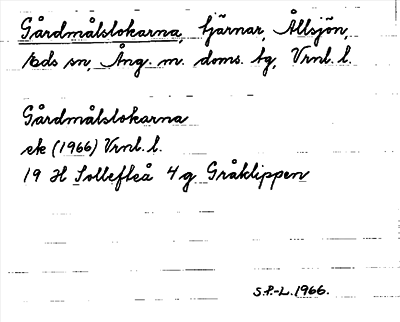 Gårdmålslokarna, tjärnar, Ållsjön,
Eds sn, Ång. m. doms. tg, Vrnl. l.
Gårdmålslokarna
ek (1966) Vrnl. l.
19 H Sollefteå 4 g Gråklippen
S.P.-L. 1966.